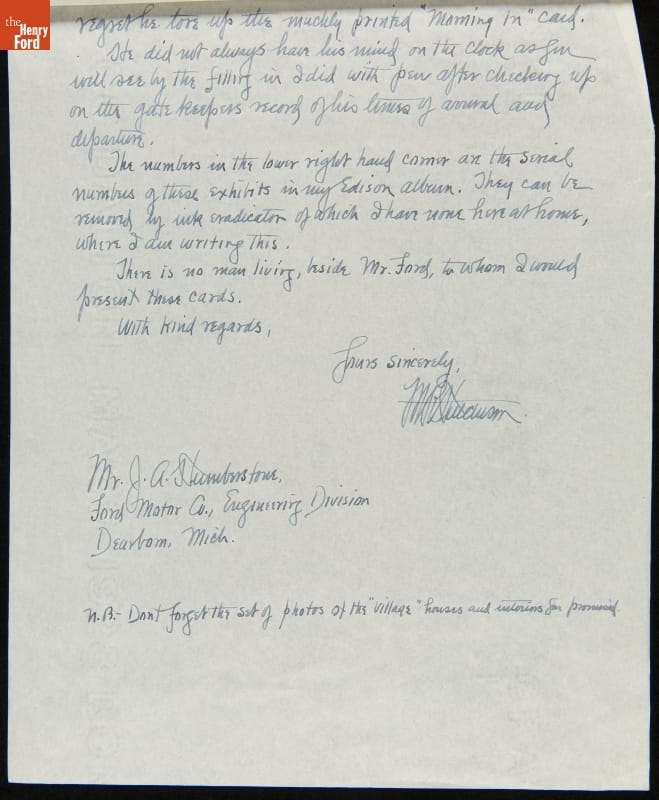 the
Henry
Ford
regret he tore up the muchly printed "Morning in" card.
He did not always have his mind on the clock as you
will see by the filling in I did with pen after checking up
on the gate keepers record of his times of arrival and
departure.
The numbers in the lower right hand corner are the serial
numbers of these exhibits in my Edison album. They can be
removed by ink eradicator of which I have none here at home,
where I am writing this.
There is no man living, beside Mr. Ford, to whom I would
present these cards.
With kind regards,
Yours sincerely,
M R Hutchison.
Mr. J. A. Humberstone,
Ford Motor Co., Engineering Division
Dearborn, Mich.
N.B.- Dont forget the set of photos of the "village" houses and interiors you promised.